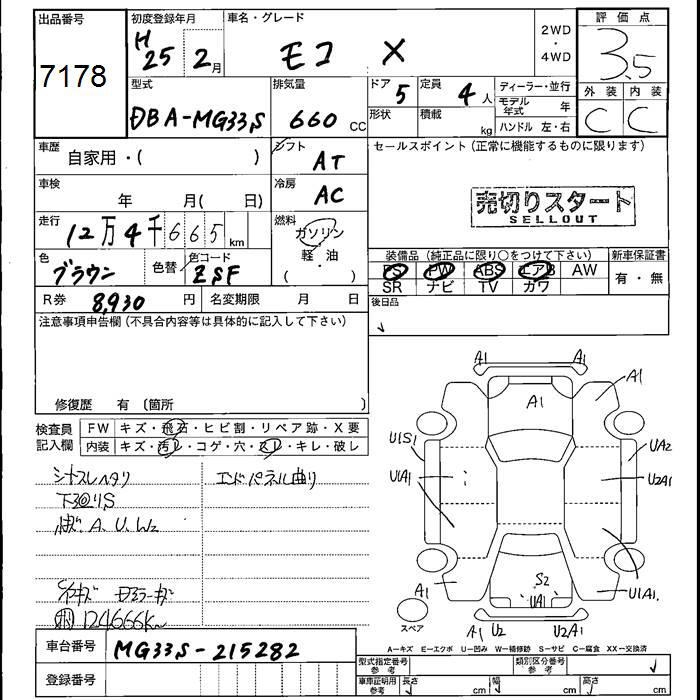 出品番号
7178
初度登録年月
H 25 2月
車名・グレード
モコ X
2WD
・
4WD
評価点
3.5
外装 内装
C C
型式
DBA-MG33S
排気量
660 CC
ドア 5
定員 4人
形状
積載 kg
ディーラー・並行
モデル年式 年
ハンドル 左・右
車歴
自家用・( )
シフト
AT
セールスポイント (正常に機能するものに限ります)
売切りスタート
SELLOUT
車検
年 月( 日)
冷房
AC
走行
12万4千665km
燃料
ガソリン
軽・油
( )
色
ブラウン
色替
色コード
ZSF
装備品 (純正品に限り○をつけて下さい)
新車保証書
PS PW ABS エアB AW
SR ナビ TV カワ
有・無
R券 8,930 円
名変期限 月 日
後日品
注意事項申告欄 (不具合内容等は具体的に記入して下さい)
修復歴 有 〔箇所 〕
検査員記入欄
FW キズ・飛石・ヒビ割・リペア跡・X要
内装 キズ・汚レ・コゲ・穴・スレ・キレ・破レ
エンドパネル曲り
A、U、W2
124666km
A1 A1
A1
A1
U1S1
U1A1
UA2
U2A1
A1
S2
UA1
U1A1
A1 U2 U2A1
スペア
A-キズ E-エクボ U-凹み W-補修跡 S-サビ C-腐食 XX-交換済
車台番号
MG33S-215282
登録番号
型式指定番号
参考
類別区分番号
参考
車庫証明用
参考
長さ cm 幅 cm 高さ cm